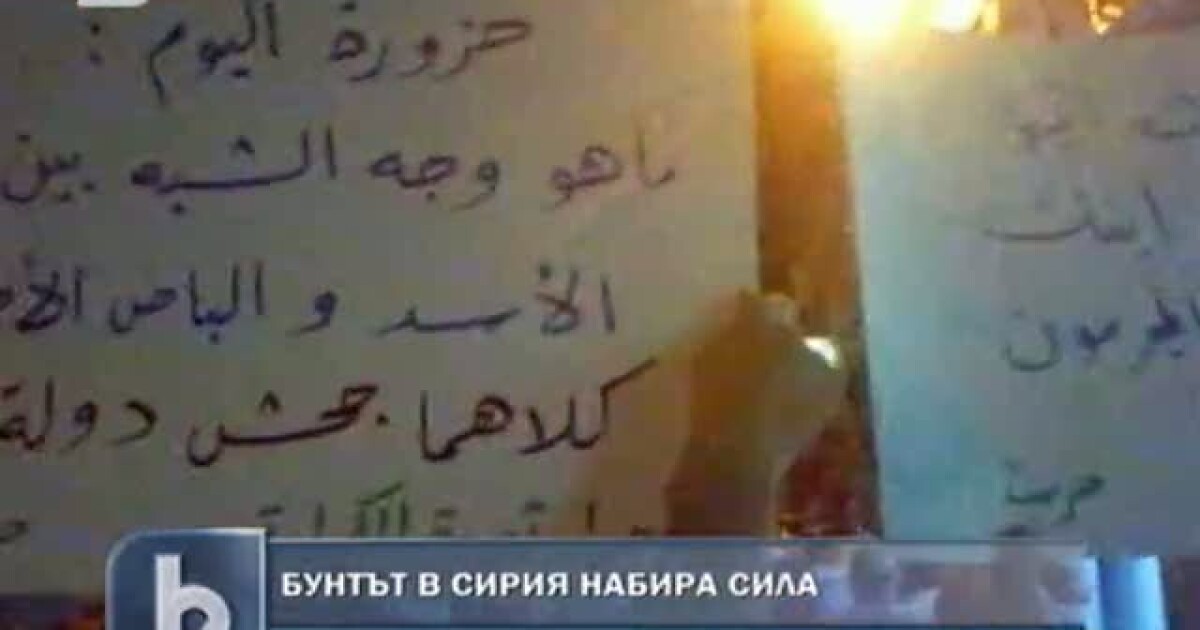 حزورة اليوم :
ماهو وجه الشبه بين
الأسد و الباص الأ
كلاهما جحش دولة
ابنك
المجرمون
b
БУНТЪТ В СИРИЯ НАБИРА СИЛА